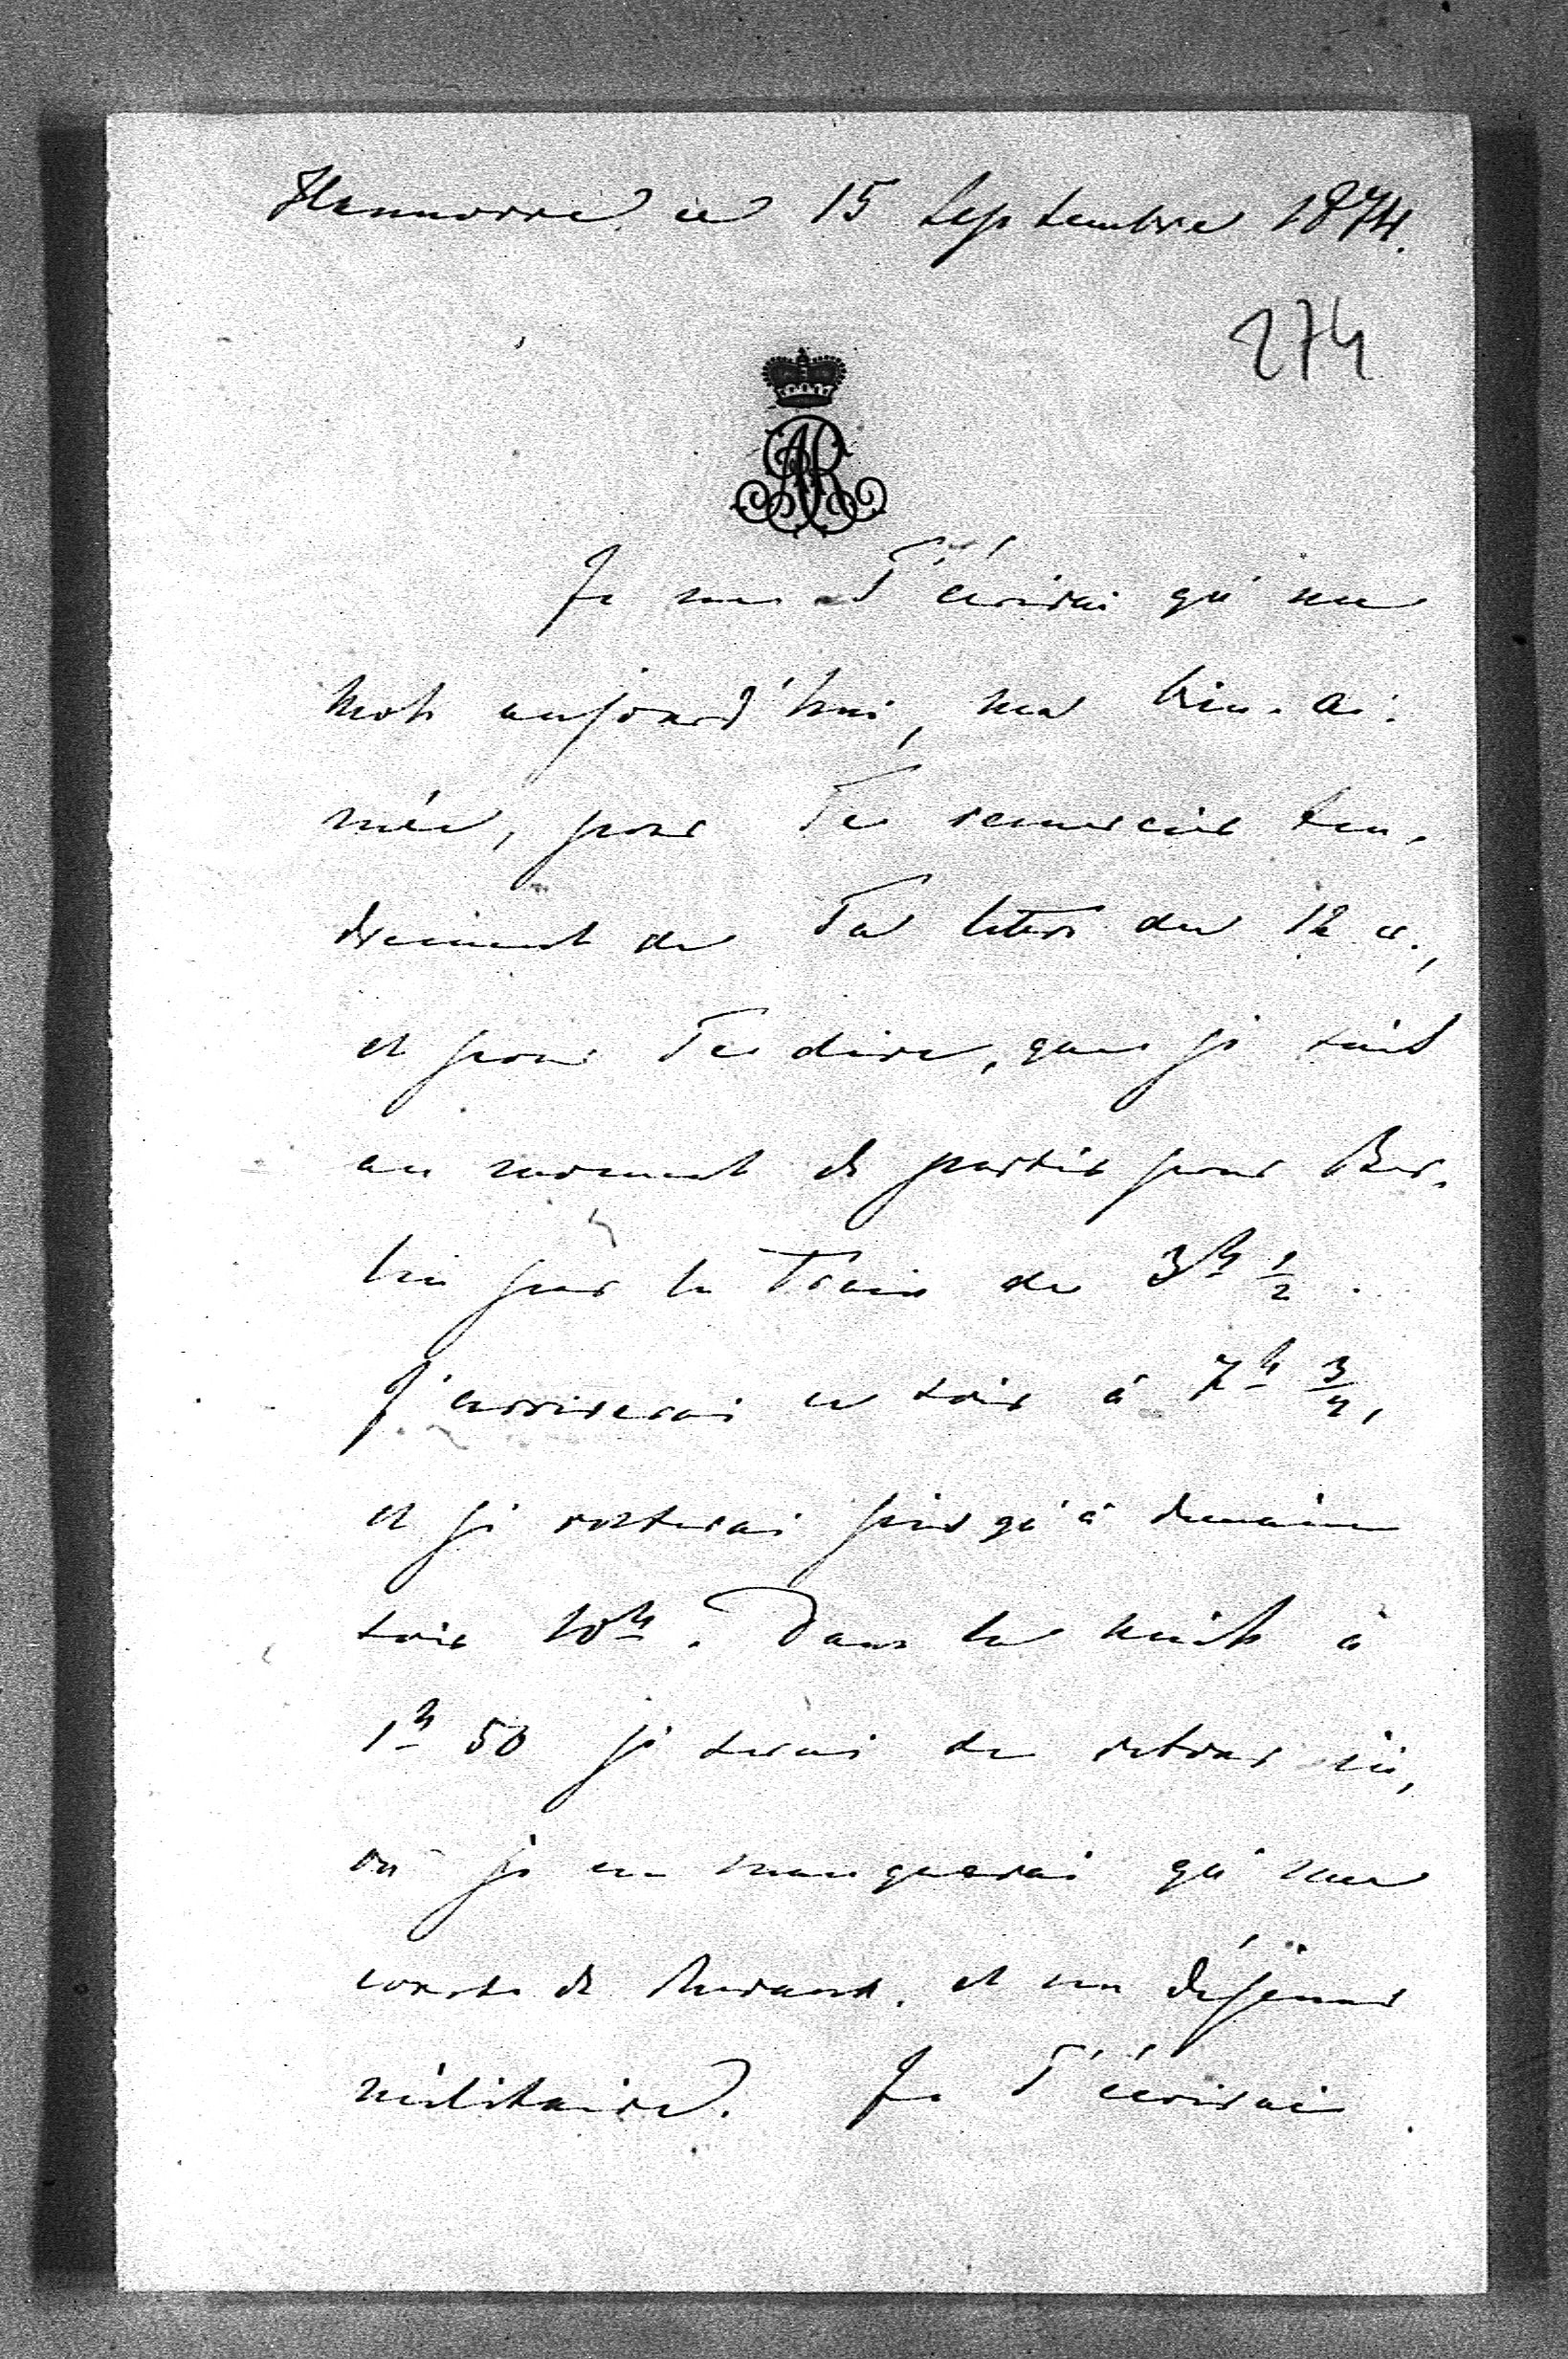 Hannovre ce 15 Septembre 1874.
274
AR
Je ne T'écrirai qu'un
mot aujourd'hui, ma bien-ai-
mée, pour Te remercier ten-
drement de Ta lettre du 12 c.,
et pour Te dire, que je suis
au moment de partir pour Ber-
lin par le Train de 3h 1/2.
J'arriverai ce soir à 7h 3/4,
et je resterai jusqu'à demain
soir 10h. Dans la nuit à
1h 50 je serai de retour ici,
où je ne manquerai qu'une
course de chevaux et un déjeuner
militaire. Je T'écrirai